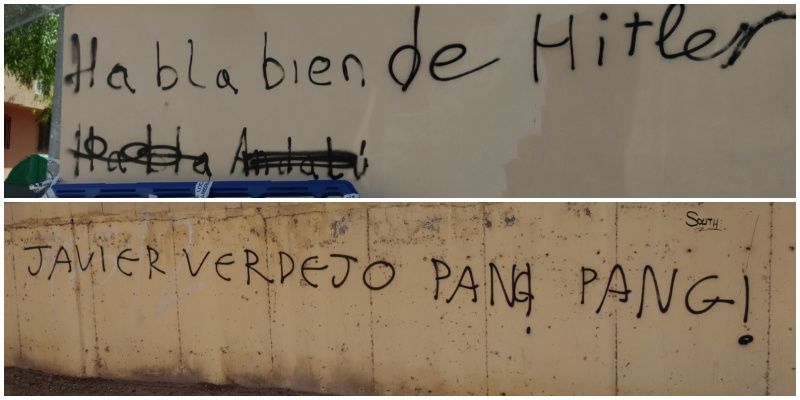 Habla bien de Hitler
Habla Andalú
South
JAVIER VERDEJO PANG! PANG!